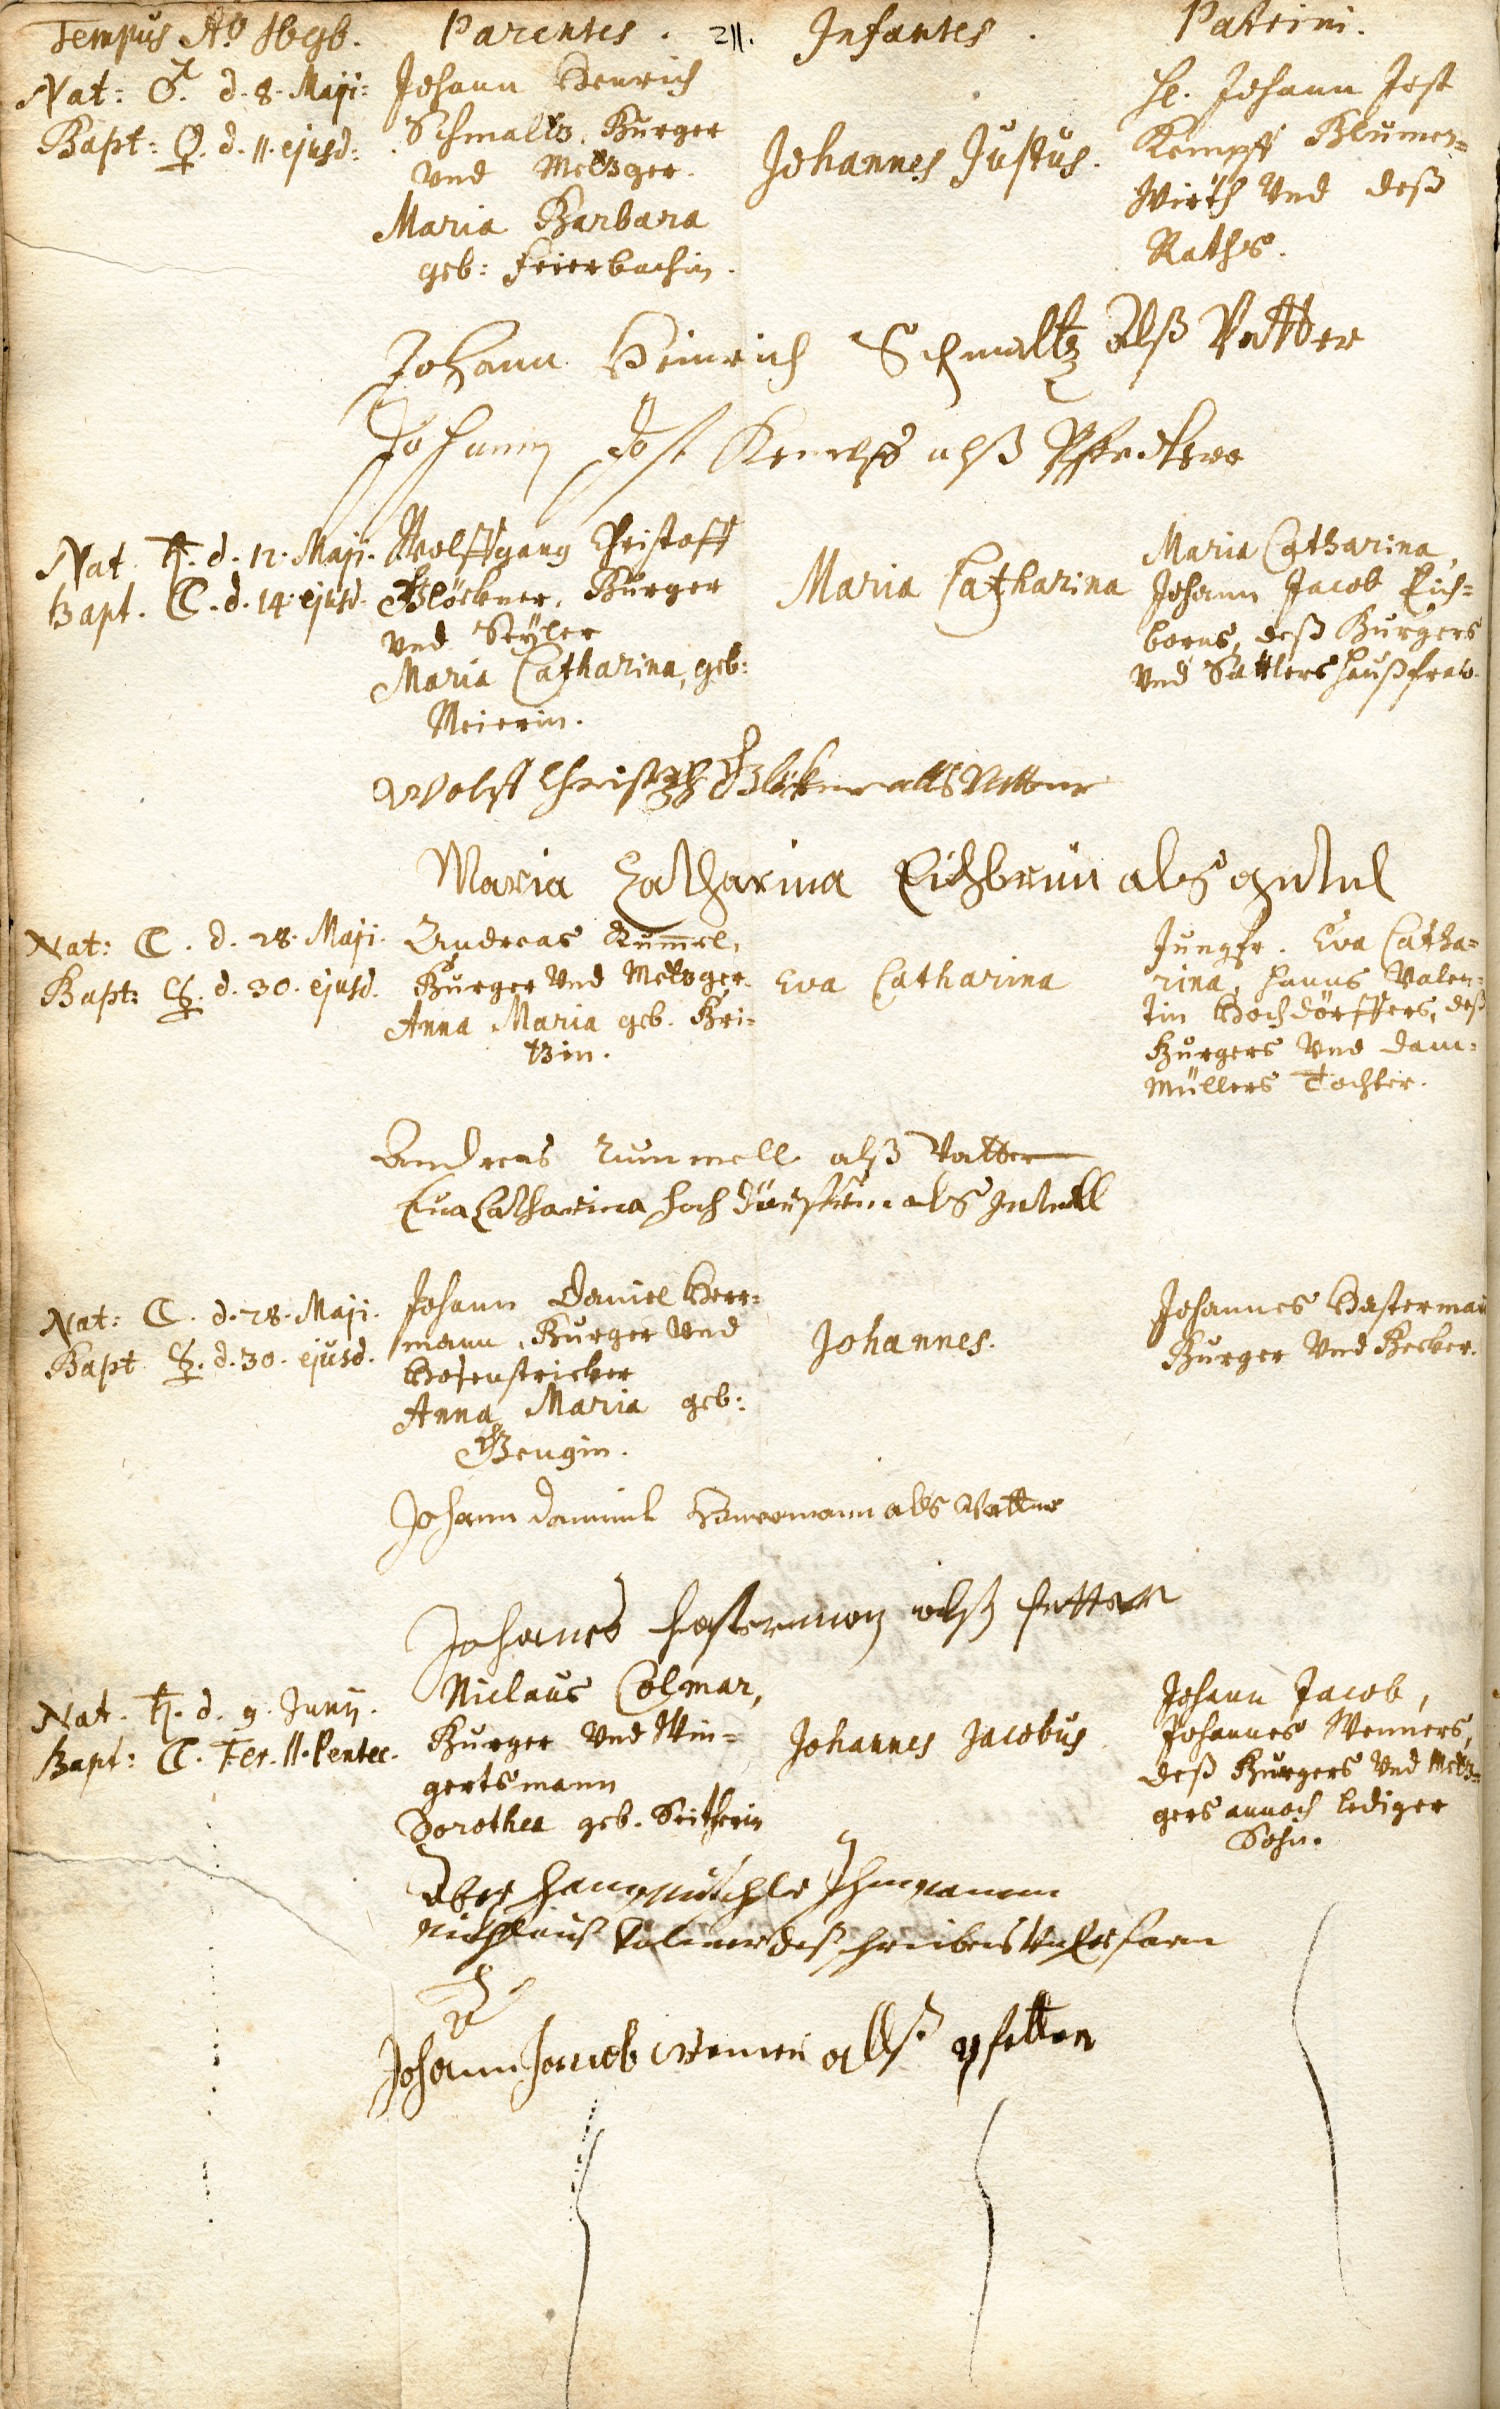 Tempus Aō 1696. Parentes. 211. Infantes. Patrini.
Nat: ♂. d. 8. Maji:
Bapt: ♀. d. 11. ejusd:
Johann Henrich
Schmaltz, Burger
vnd Metzger.
Maria Barbara
geb: Feierbachin.
Johannes Justus.
H. Johann Jost
Kempff Blumen-
Wirth vnd deß
Raths.
Johann Heinrich Schmaltz alß Vatter
Johann Jost Kempff alß Pfetter
Nat. ♄. d. 12. Maji.
Bapt. ☾. d. 14. ejusd.
Wolffgang Christoff
Glöckner, Burger
vnd Seyler
Maria Catharina, geb:
Meierin.
Maria Catharina
Maria Catharina,
Johann Jacob Eich-
borns, deß Burgers
vnd Sattlers Haußfraw.
Wolff Christoph Glöckner alls Vatter
Maria Catharina Eichbrun als
Nat: ☾. d. 28. Maji.
Bapt: ☿. d. 30. ejusd.
Andreas Rum̄el,
Burger vnd Metzger.
Anna Maria geb. Bri-
tzin.
Eva Catharina
Jungfr. Eva Catha-
rina, Hanns Valen-
tin Hochdörffers, deß
Burgers vnd Dam-
Müllers Tochter.
Andreas Rummell alß Vatter
Eua Catharina Hochdörfferin als
Nat: ☾. d. 28. Maji.
Bapt ☿. d. 30. ejusd.
Johann Daniel Herr-
mann, Burger vnd
Hosenstricker
Anna Maria geb:
Gengin.
Johannes.
Johannes Hasterman
Burger vnd Becker.
Johann Daniel Herrmann als Vatter
Johanes Hasterman alß Pfetter
Nat. ♄. d. 9. Junij.
Bapt: ☾. Fer. II. Pentec.
Niclaus Colmar,
Burger vnd Win-
gertsmann
Dorothea geb. Seitherin
Johannes Jacobus
Johann Jacob,
Johannes Wenners,
deß Burgers vnd Metz-
gers annoch lediger
Sohn.
Johann Jacob alß